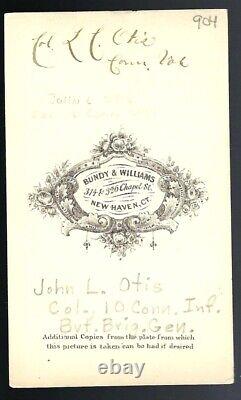 904
Col. L. C. Otis
Conn. Vol
John L Otis
BUNDY & WILLIAMS
314 & 326 Chapel St.
NEW HAVEN, CT.
John L. Otis
Col. 10 Conn. Inf.
Bvt. Brig. Gen.
Additional Copies from the plate from which
this picture is taken can be had if desired